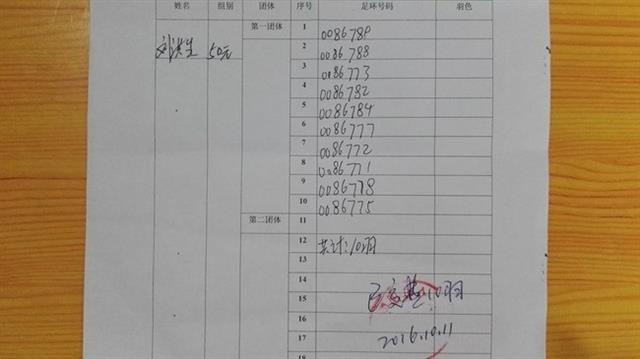 姓名 组别 团体 序号 足环号码 羽色
第一团体 1 0086789
50元 2 0086788
3 0086773
4 0086782
5 0086784
6 0086777
7 0086772
8 0086771
9 0086778
10 0086775
第二团体 11
12 共计:10羽
13
14
15 10羽
16
17 2016.10.11
18